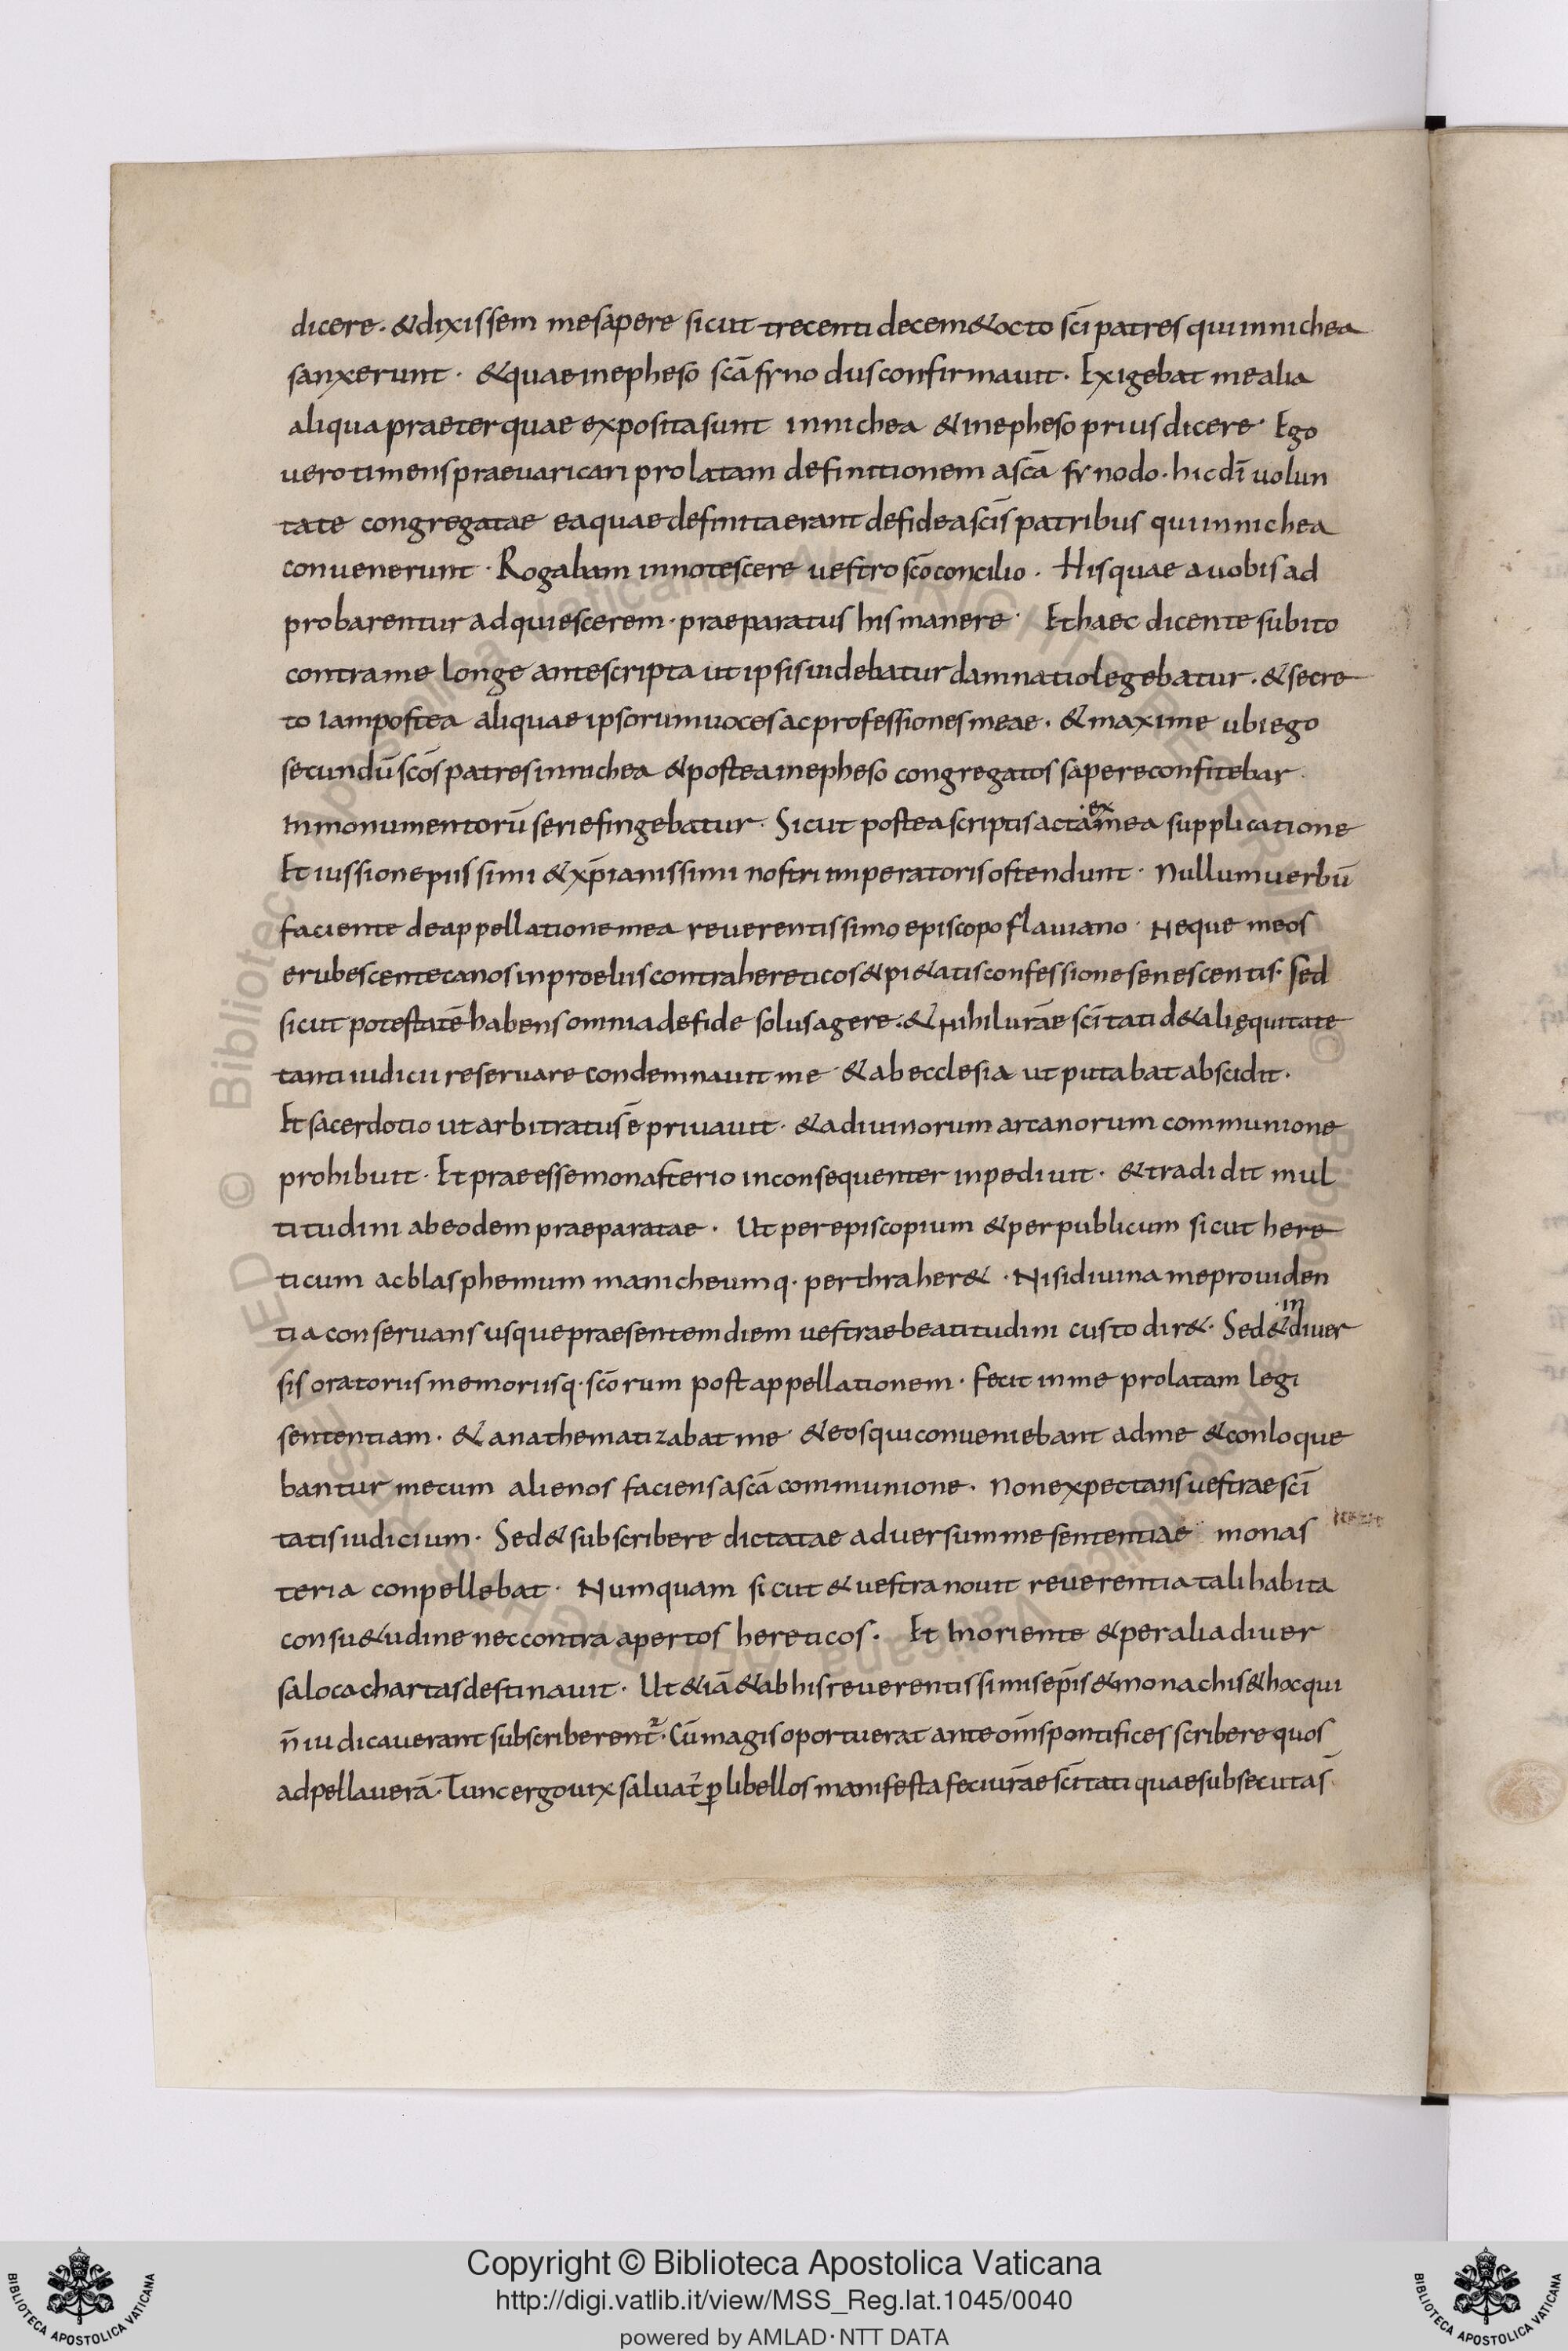 dicere · & dixissem me sapere sicut trecenti decem & octo sc̄i patres qui in nichea
sanxerunt · & quae in epheso sc̄a synodus confirmauit · Exigebat me alia
aliqua praeter quae exposita sunt in nichea & in epheso prius dicere · Ego
uero timens praeuaricari prolatam definitionem a sc̄a synodo · hic dī uolun
tate congregatae ea quae definita erant de fide a sc̄is patribus qui in nichea
conuenerunt · Rogabam innotescere uestro sc̄o concilio · His quae a uobis ad
probarentur adquiescerem · praeparatus his manere · Et haec dicente subito
contra me longe ante scripta ut ipsis uidebatur damnatio legebatur · & secre
to iam postea aliquae ipsorum uoces ac professiones meae · & maxime ubi ego
secundū sc̄os patres in nichea & postea in epheso congregatos sapere confitebar ·
In monumentorū serie fingebatur · Sicut postea scriptis acta ·ex· mea supplicatione
Et iussione piissimi & xp̄ianissimi nostri imperatoris ostendunt · Nullum uerbū
faciente de appellatione mea reuerentissimo episcopo flauiano · Neque meos
erubescente canos in proeliis contra hereticos & pi&atis confessione senescentis · sed
sicut potestatē habens omnia de fide solus agere · & Nihil ur̄ae sc̄itati d& ali ęquitate
tanti iudicii reseruare condemnauit me · & ab ecclesia ut putabat abscidit ·
Et sacerdotio ut arbitratus ē priuauit · & a diuinorum arcanorum communione
prohibuit · Et praeesse monasterio inconsequenter inpediuit · & tradidit mul
titudini ab eodem praeparatae · Ut per episcopium & per publicum sicut here
ticum ac blasphemum manicheumq· perthraher& · Nisi diuina me prouiden
tia conseruans usque praesentem diem uestrae beatitudini custodir& · Sed & ·in diuer
sis oratoriis memoriisq· sc̄orum post appellationem · fecit in me prolatam legi
sententiam · & anathematizabat me · & eos qui conueniebant ad me & conloque
bantur mecum alienos faciens a sc̄a communione · Non expectans uestrae sc̄i
tatis iudicium · Sed & subscribere dictatae aduersum me sententiae monas
teria conpellebat · Numquam sicut & uestra nouit reuerentia tali habita
consu&udine nec contra apertos hereticos · Et In oriente & per alia diuer
sa loca chartas destinauit · Ut &iā & ab his reuerentissimis ep̄is & monachis & hoc qui
n̄ iudicauerant subscriberent᷑ · Cū magis oportuerat ante om̄s pontifices scribere quos
adpellauerā · Tunc ergo uix saluat᷑ ꝑ libellos manifesta feci ur̄ae sc̄itati quae subsecuta s̄
Copyright © Biblioteca Apostolica Vaticana
http://digi.vatlib.it/view/MSS_Reg.lat.1045/0040
powered by AMLAD·NTT DATA
BIBLIOTECA APOSTOLICA VATICANA
BIBLIOTECA APOSTOLICA VATICANA